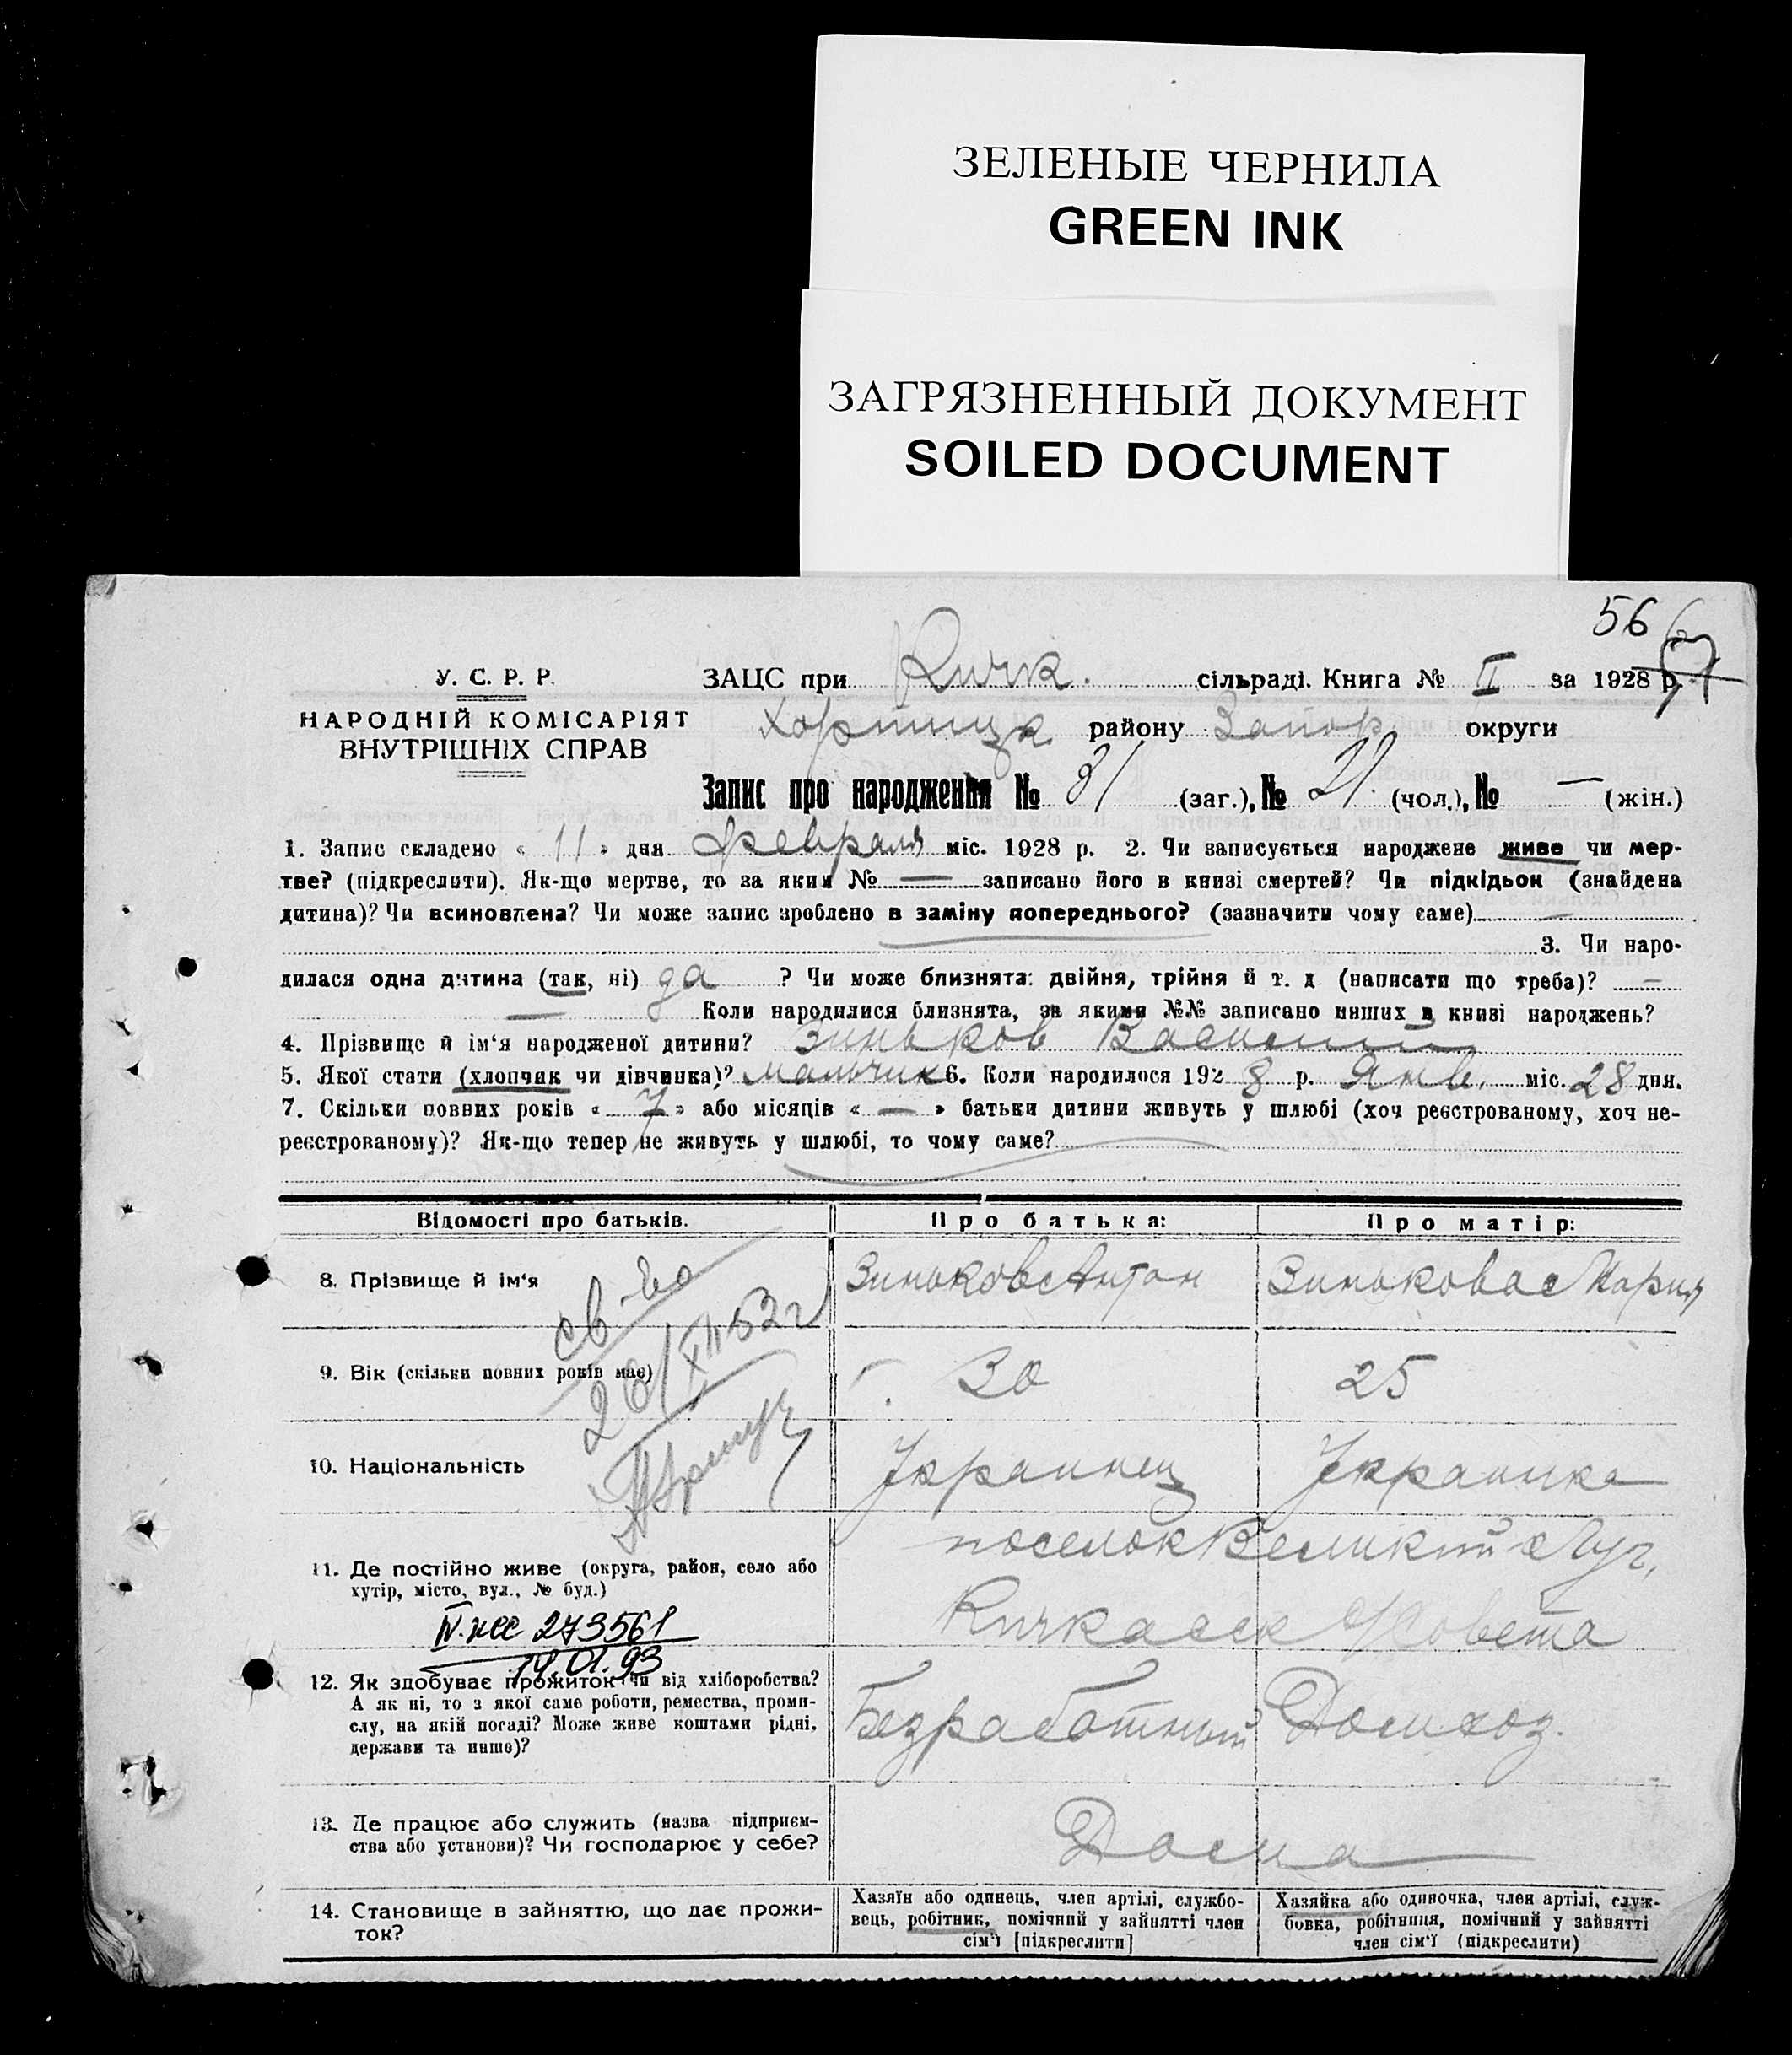 ЗЕЛЕНЫЕ ЧЕРНИЛА
GREEN INK
ЗАГРЯЗНЕННЫЙ ДОКУМЕНТ
SOILED DOCUMENT
56
У. С. Р. Р.
НАРОДНІЙ КОМІСАРІЯТ
ВНУТРІШНІХ СПРАВ
ЗАЦС при Кичк. сільраді. Книга № II за 1928 р.
Хортицк району Запор округи
Запис про народження № 31 (заг.), № 21. (чол.), № — (жін.)
1. Запис складено « 11 » дня февраля міс. 1928 р. 2. Чи записується народжене живе чи мер-
тве? (підкреслити). Як-що мертве, то за яким № — записано його в книзі смертей? Чи підкідьок (знайдена
дитина)? Чи всиновлена? Чи може запис зроблено в заміну попереднього? (зазначити чому саме) —
3. Чи наро-
дилася одна дитина (так, ні) да ? Чи може близнята: двійня, трійня й т. д (написати що треба)? —
— Коли народилися близнята, за якими №№ записано инших в книзі народжень?
4. Прізвище й ім'я народженої дитини? Зиньков Василий
5. Якої стати (хлопчик чи дівчинка)? мальчик 6. Коли народилося 1928 р. Янв. міс. 28 дня.
7. Скільки повних років « 7 » або місяців « — » батьки дитини живуть у шлюбі (хоч реєстрованому, хоч не-
реєстрованому)? Як-що тепер не живуть у шлюбі, то чому саме?
Відомості про батьків.
Про батька:
Про матір:
8. Прізвище й ім'я
Зиньков Антон
Зинькова Мария
св-во
20/XII 52 г
9. Вік (скільки повних років має)
30
25
10. Національність
Украинец
Украинка
11. Де постійно живе (округа, район, село або
хутір, місто, вул., № буд.)
поселок Великий Луг,
Кичкасск с/Совета
273561
14.01.93
12. Як здобуває прожиток чи від хліборобства?
А як ні, то з якої саме роботи, ремества, проми-
слу, на якій посаді? Може живе коштами рідні,
держави та инше)?
Безработный
Домхоз.
13. Де працює або служить (назва підприєм-
ства або установи)? Чи господарює у себе?
Дома
14. Становище в зайняттю, що дає прожи-
ток?
Хазяїн або одинець, член артілі, службо-
вець, робітник, помічний у зайнятті член
сім'ї [підкреслити]
Хазяйка або одиночка, член артілі, служ-
бовка, робітниця, помічний у зайнятті
член сім'ї (підкреслити)